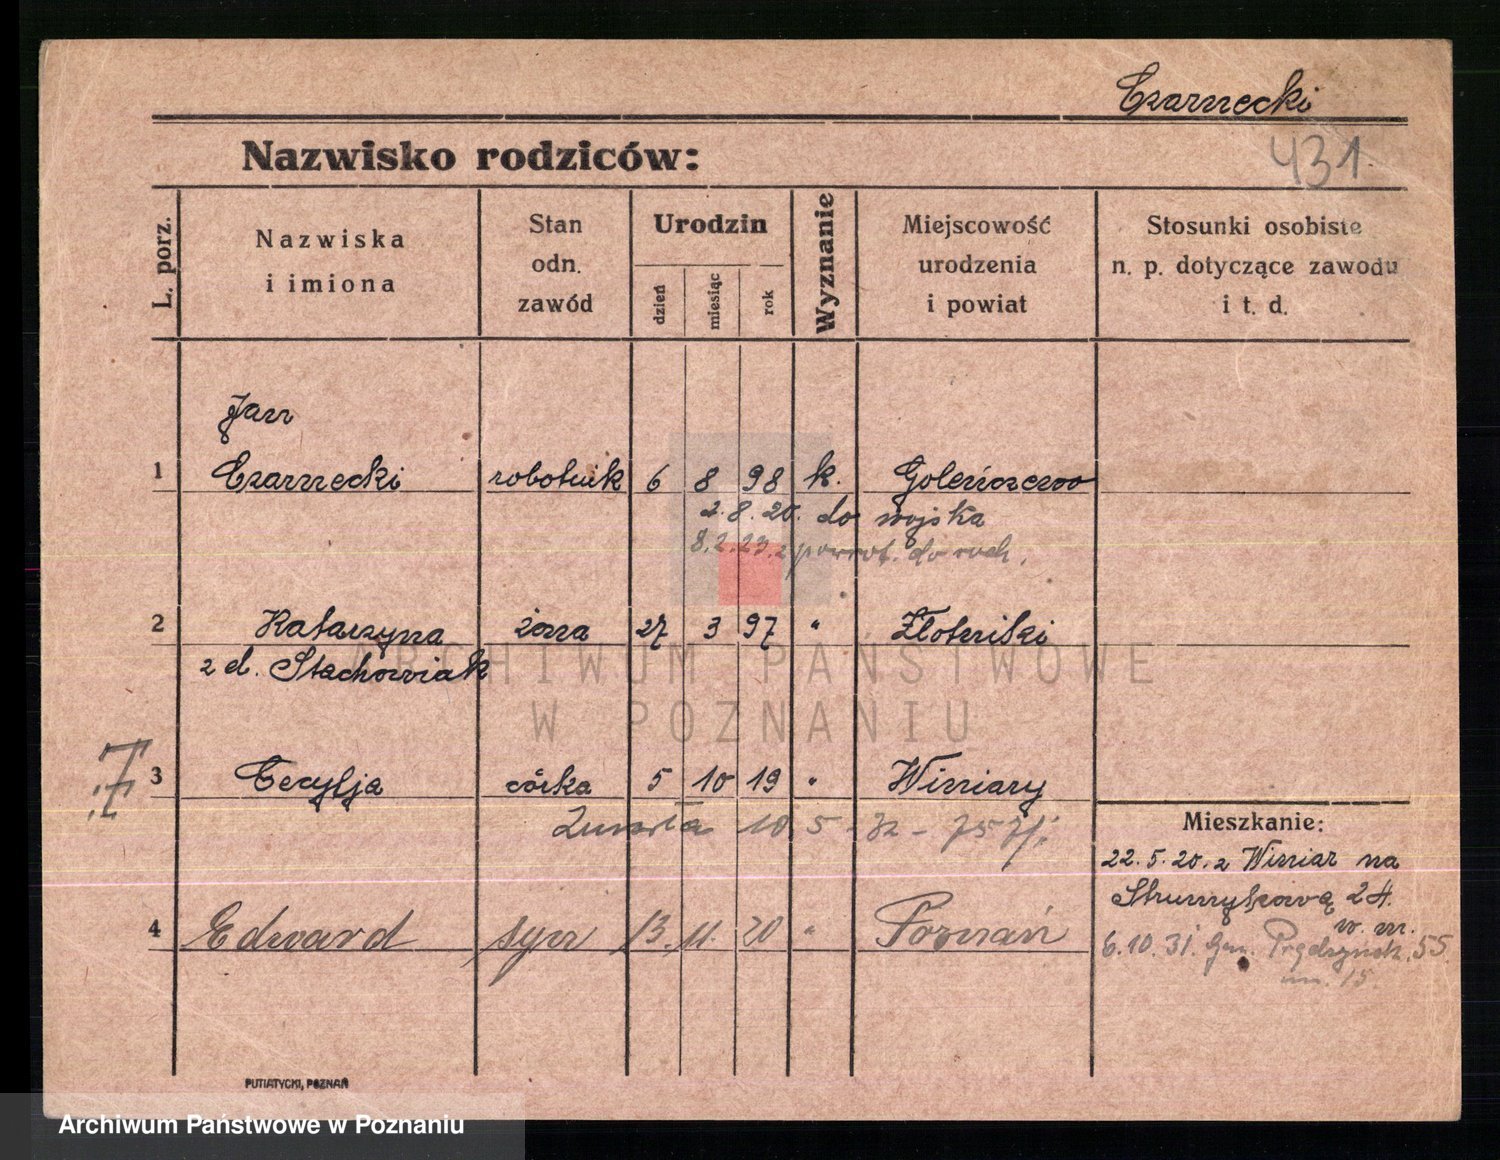 Czarnecki
Nazwisko rodziców:
431.
L. porz.
Nazwiska
i imiona
Stan
odn.
zawód
Urodzin
dzień
miesiąc
rok
Wyznanie
Miejscowość
urodzenia
i powiat
Stosunki osobiste
n. p. dotyczące zawodu
i t. d.
Jan
1 Czarnecki robotnik 6 8 98 k. Golenczewo
2.8.20. do wojska
8.2.23. z powrot. do
2 Katarzyna żona 27 3 97 " Złotniki
z d. Stachowiak
3 Cecylja córka 5 10 19 " Winiary
Zmarła 10 5 - 32 -
Mieszkanie:
22.5.20. z Winiar na
Strumykową 24.
w. m.
4 Edward syn 13. 11. 20 " Poznań
6.10.31. Gen. Prądzyńsk. 55
m. 15.
PUTIATYCKI, POZNAŃ
ARCHIWUM PAŃSTWOWE
W POZNANIU
Archiwum Państwowe w Poznaniu